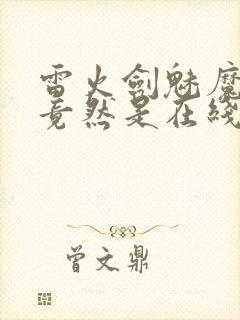 雷火劍魅魔
竟然是在綫
曾文鼎